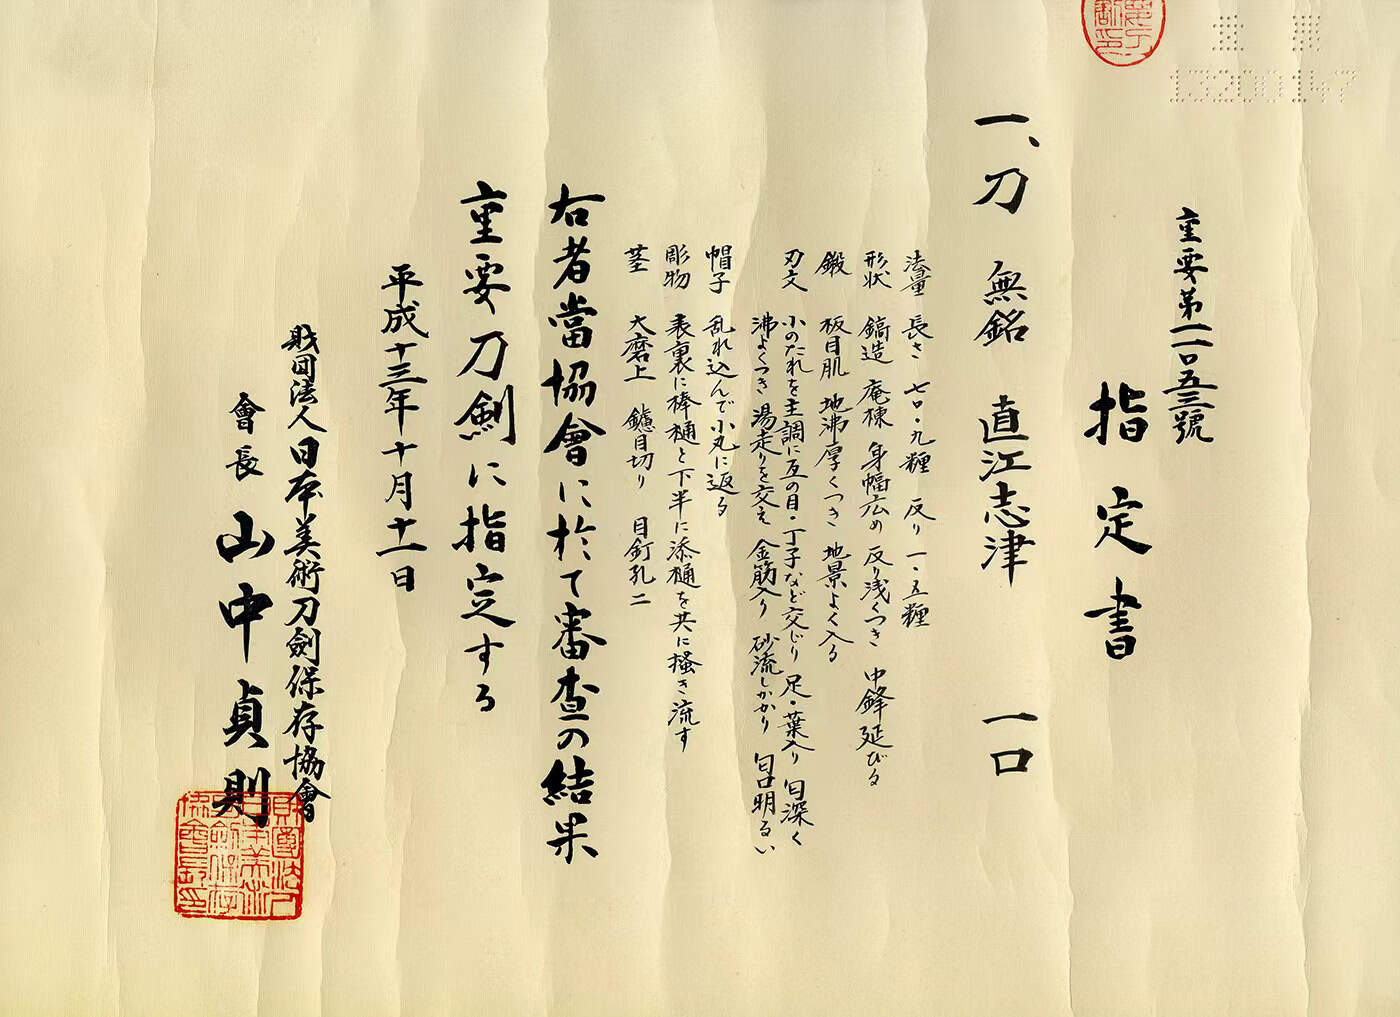 13200147
重要第一一〇五三號
指定書
一、刀 無銘 直江志津 一口
法量 長さ 七〇・九糎 反り 一・五糎
形状 鎬造 庵棟 身幅広め 反り浅くつき 中鋒延びる
鍛 板目肌 地沸厚くつき 地景よく入る
刃文 小のたれを主調に互の目・丁子など交じり 足・葉入り 匂深く
沸よくつき 湯走りを交え 金筋入り 砂流しかかり 匂口明るい
帽子 乱れ込んで小丸に返る
彫物 表裏に棒樋と下半に添樋を共に掻き流す
茎 大磨上 鑢目切り 目釘孔二
右者當協會に於て審査の結果
重要刀剣に指定する
平成十三年十月十一日
財団法人日本美術刀劍保存協會
會長 山中貞則